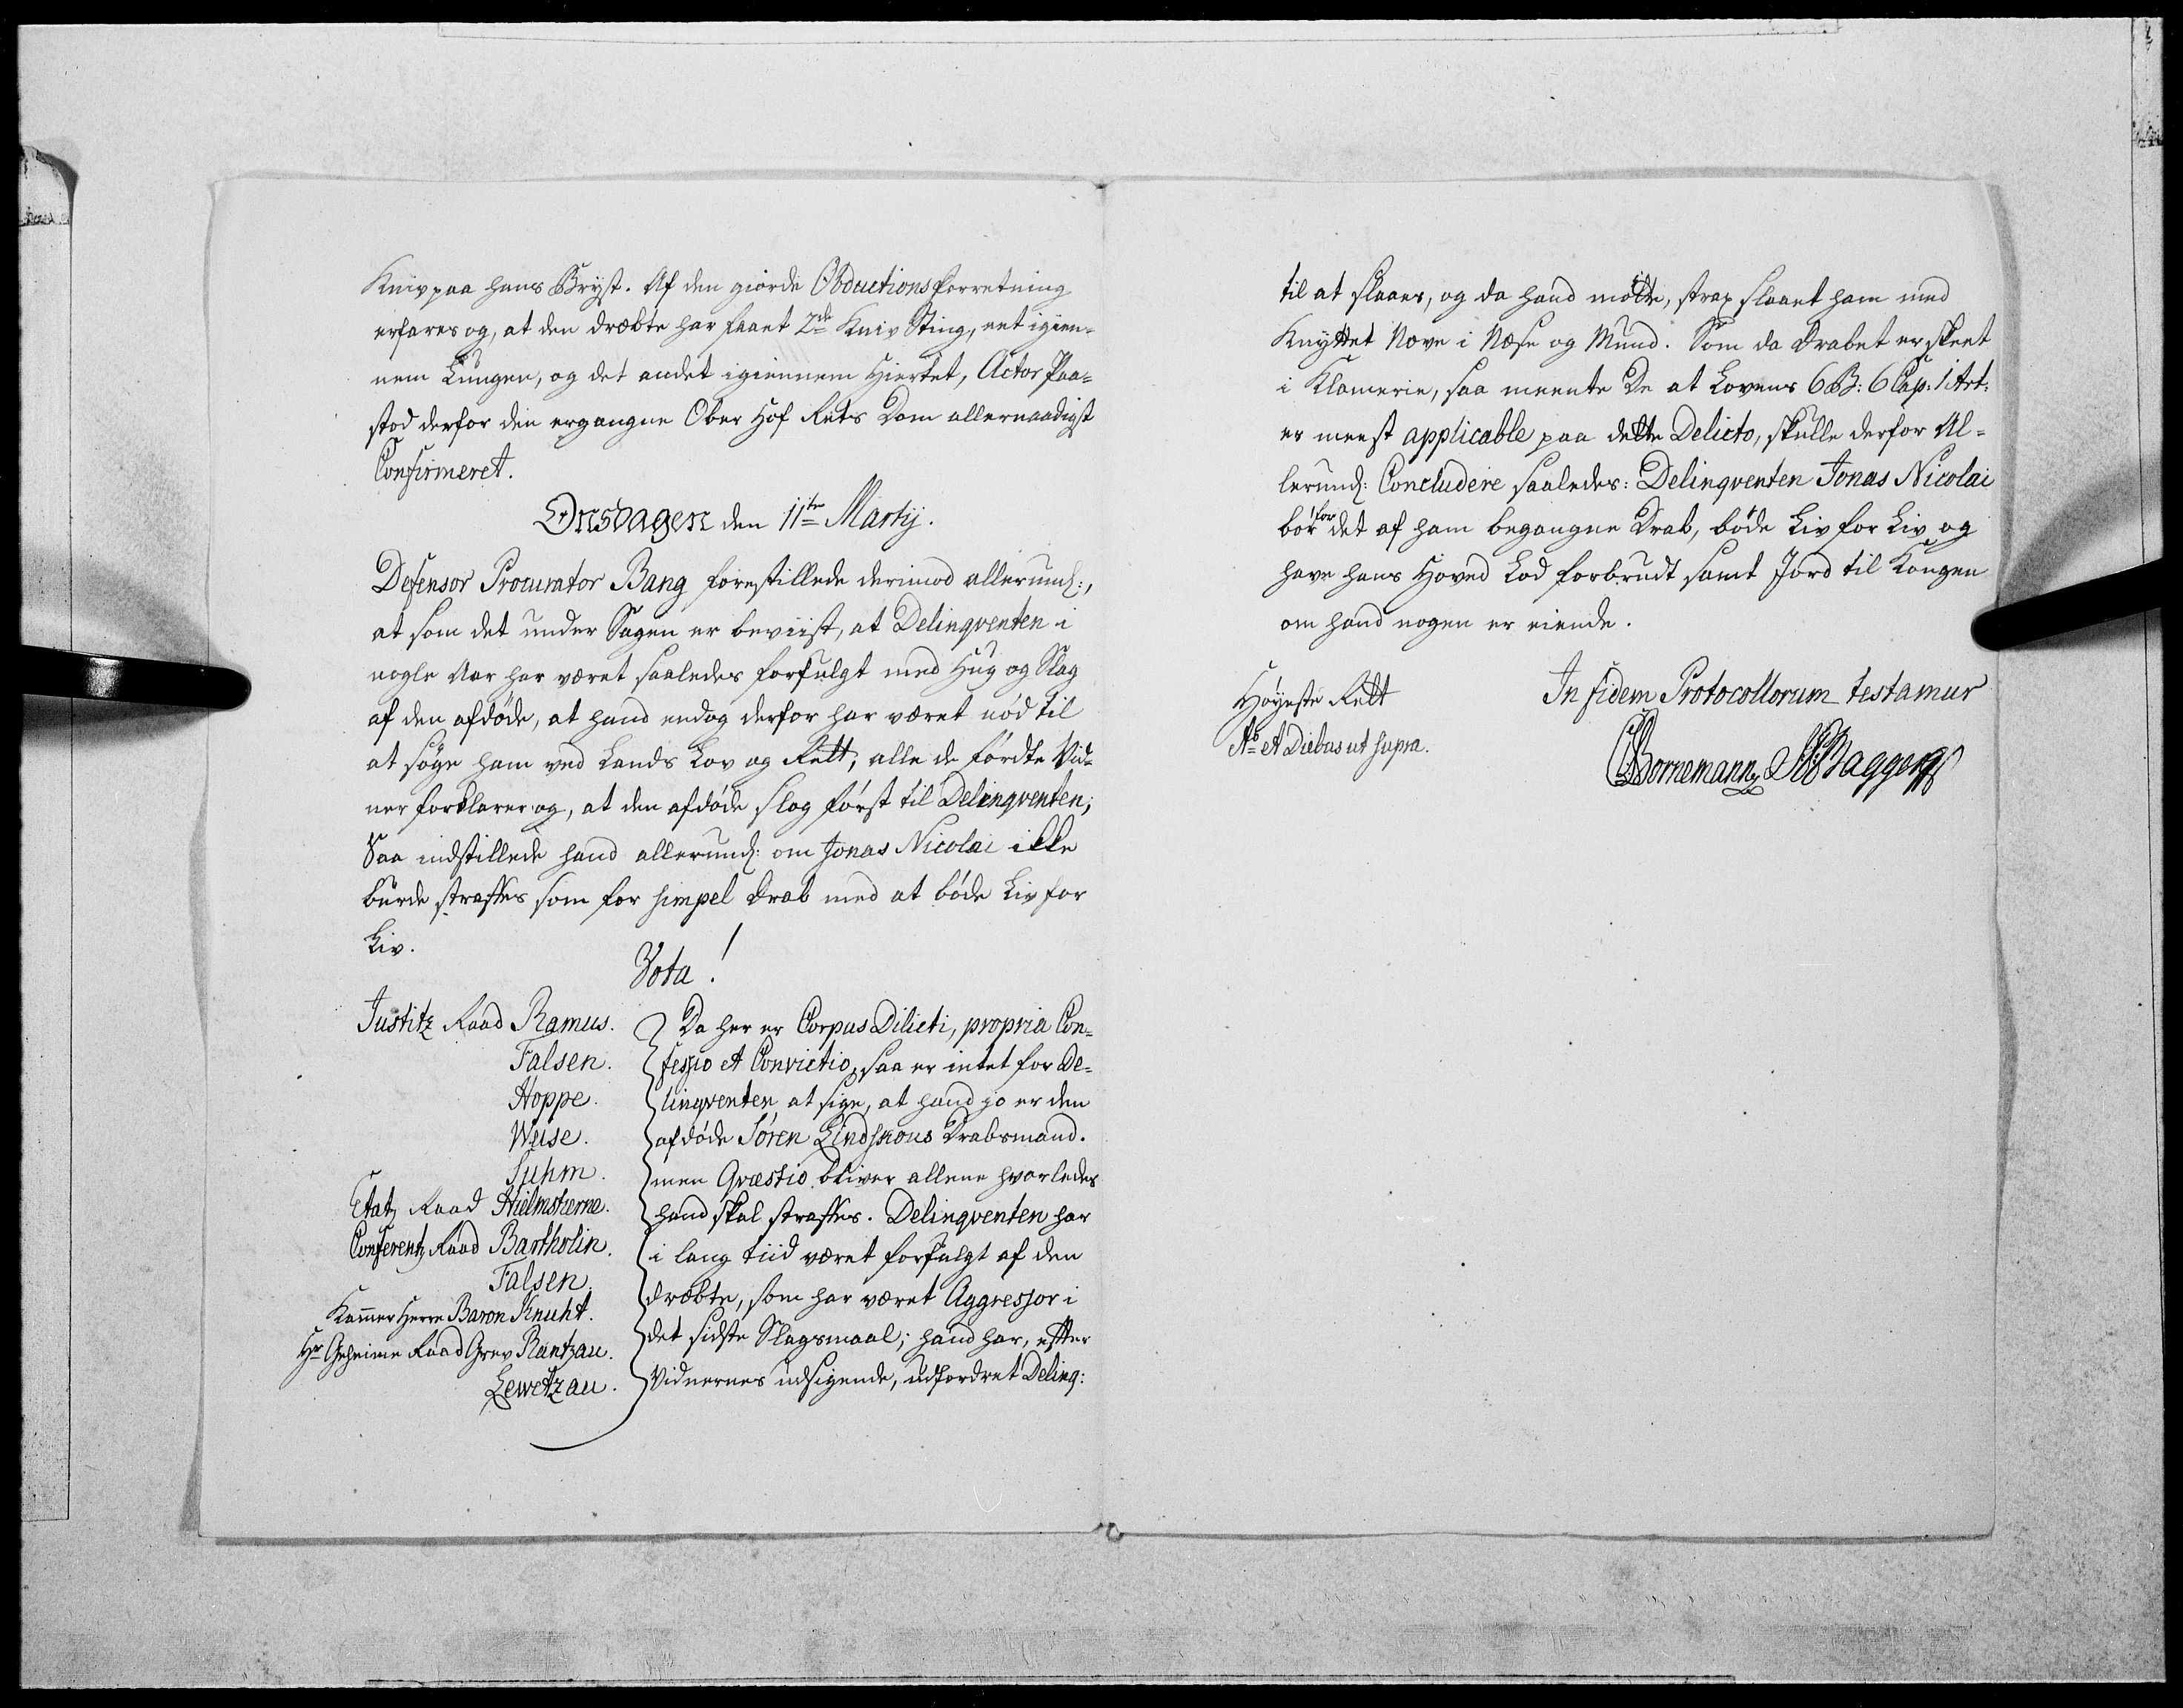 Kniv paa hans Bryst. Af den giorde Obductions forretning
erfares og, at den dræbte har faaet 2de Kniv Sting, eet igien-
nem Lungen, og det andet igiennem Hiertet, Actor Paa-
stod derfor den ergangne Ober Hof Rets Dom allernaadigst
Confirmeret.
Onsdagen den 11te Martij.
Defensor Procurator Bang forestillede derimod allerund:,
at som det under Sagen er beviist, at Delinqventen i
nogle Aar har været saaledes forfulgt med Hug og Slag
af den afdøde, at hand endog derfor har været nød til
at søge ham ved Lands Lov og Rett, alle de førdte Vid-
ner forklarer og, at den afdøde slog først til Delinqventen;
Saa indstillede hand allerund: om Jonas Nicolai ikke
burde straffes som for simpel Drab med at bøde Liv for
Liv.
Vota!
Justitz Raad Ramus.
Falsen.
Hoppe.
Weise.
Suhm.
Etatz Raad Hielmstierne.
Conferentz Raad Bartholin.
Falsen.
Kammer Herre Baron Knuht.
Hr Geheime Raad Grev Rantzau.
Lewetzau.
Da her er Corpus Dilicti, propria Con-
fessio et Convictio, saa er intet for De-
linqventen at sige, at hand jo er den
afdøde Søren Lindskous Drabsmand.
men Qvæstio bliver allene hvorledes
hand skal straffes. Delinqventen har
i lang tiid været forfulgt af den
dræbte, som har været Aggressor i
det sidste Slagsmaal; hand har, efter
Vidnernes udsigende, udfordret Delinq:
til at slaaes, og da hand mødte, strax slaaet ham med
Knyttet Næve i Næse og Mund. Som da Drabet er skeet
i Klamerie, saa meente De at Lovens 6 B: 6 Cap: 1 Art:
er meest applicable paa dette Delicto, skulle derfor Al-
lerund: Concludere saaledes: Delinqventen Jonas Nicolai
bør for det af ham begangne Drab, bøde Liv for Liv og
have hans Hoved Lod forbrudt samt Jord til Kongen
om hand nogen er eiende.
Høyeste Rett
Ao et Diebus ut supra.
In fidem Protocollorum testamur
Bornemann Baggerg